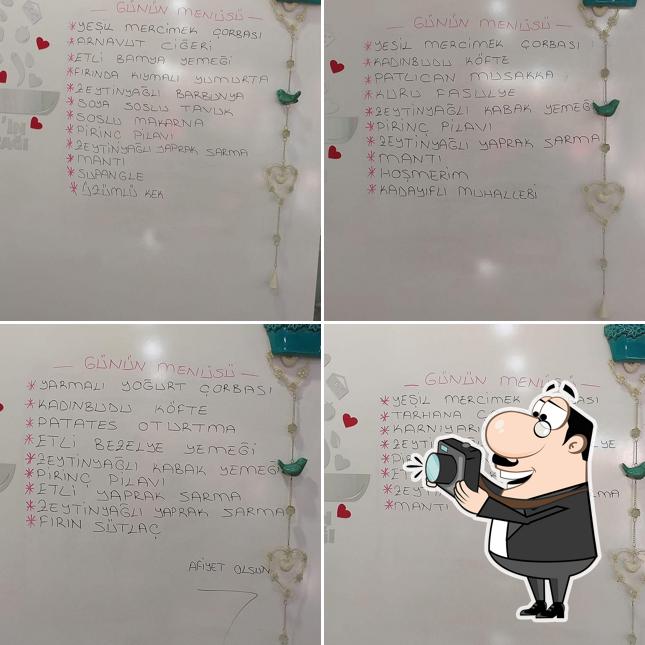 — GÜNÜN MENÜSÜ —
*YEŞİL MERCİMEK ÇORBASI
*ARNAVUT CİĞERİ
*ETLİ BAMYA YEMEĞİ
*FIRINDA KIYMALI YUMURTA
*ZEYTİNYAĞLI BARBUNYA
*SOYA SOSLU TAVUK
*SOSLU MAKARNA
*PİRİNÇ PİLAVI
*ZEYTİNYAĞLI YAPRAK SARMA
*MANTI
*SUPANGLE
*ÜZÜMLÜ KEK
— GÜNÜN MENÜSÜ —
*YEŞİL MERCİMEK ÇORBASI
*KADINBUDU KÖFTE
*PATLICAN MUSAKKA
*KURU FASULYE
*ZEYTİNYAĞLI KABAK YEMEĞİ
*PİRİNÇ PİLAVI
*ZEYTİNYAĞLI YAPRAK SARMA
*MANTI
*HOŞMERİM
*KADAYIFLI MUHALLEBİ
— GÜNÜN MENÜSÜ —
*YARMALI YOĞURT ÇORBASI
*KADINBUDU KÖFTE
*PATATES OTURTMA
*ETLİ BEZELYE YEMEĞİ
*ZEYTİNYAĞLI KABAK YEMEĞİ
*PİRİNÇ PİLAVI
*ETLİ YAPRAK SARMA
*ZEYTİNYAĞLI YAPRAK SARMA
*FIRIN SÜTLAÇ
AFİYET OLSUN
— GÜNÜN MENÜSÜ —
*YEŞİL MERCİMEK
*TARHANA
*MANTI